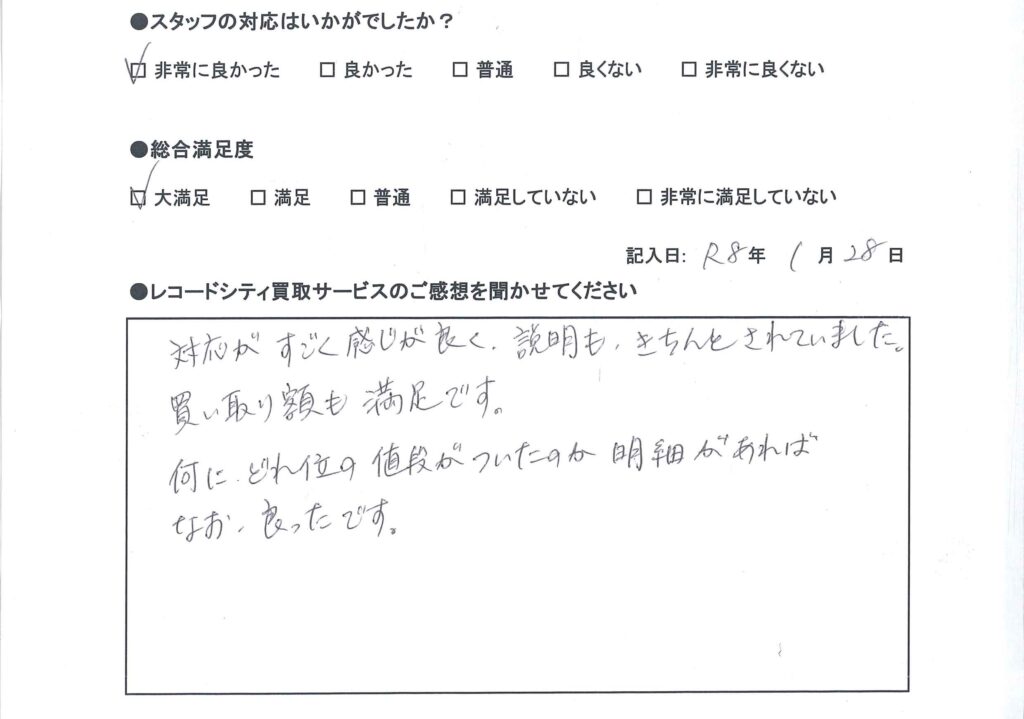 ●スタッフの対応はいかがでしたか？
☑ 非常に良かった □ 良かった □ 普通 □ 良くない □ 非常に良くない
●総合満足度
☑ 大満足 □ 満足 □ 普通 □ 満足していない □ 非常に満足していない
記入日: R8年 1月28日
●レコードシティ買取サービスのご感想を聞かせてください
対応がすごく感じが良く、説明も、きちんとされていました。
買い取り額も満足です。
何に、どれ位の値段がついたのか明細があれば
なお、良ったです。